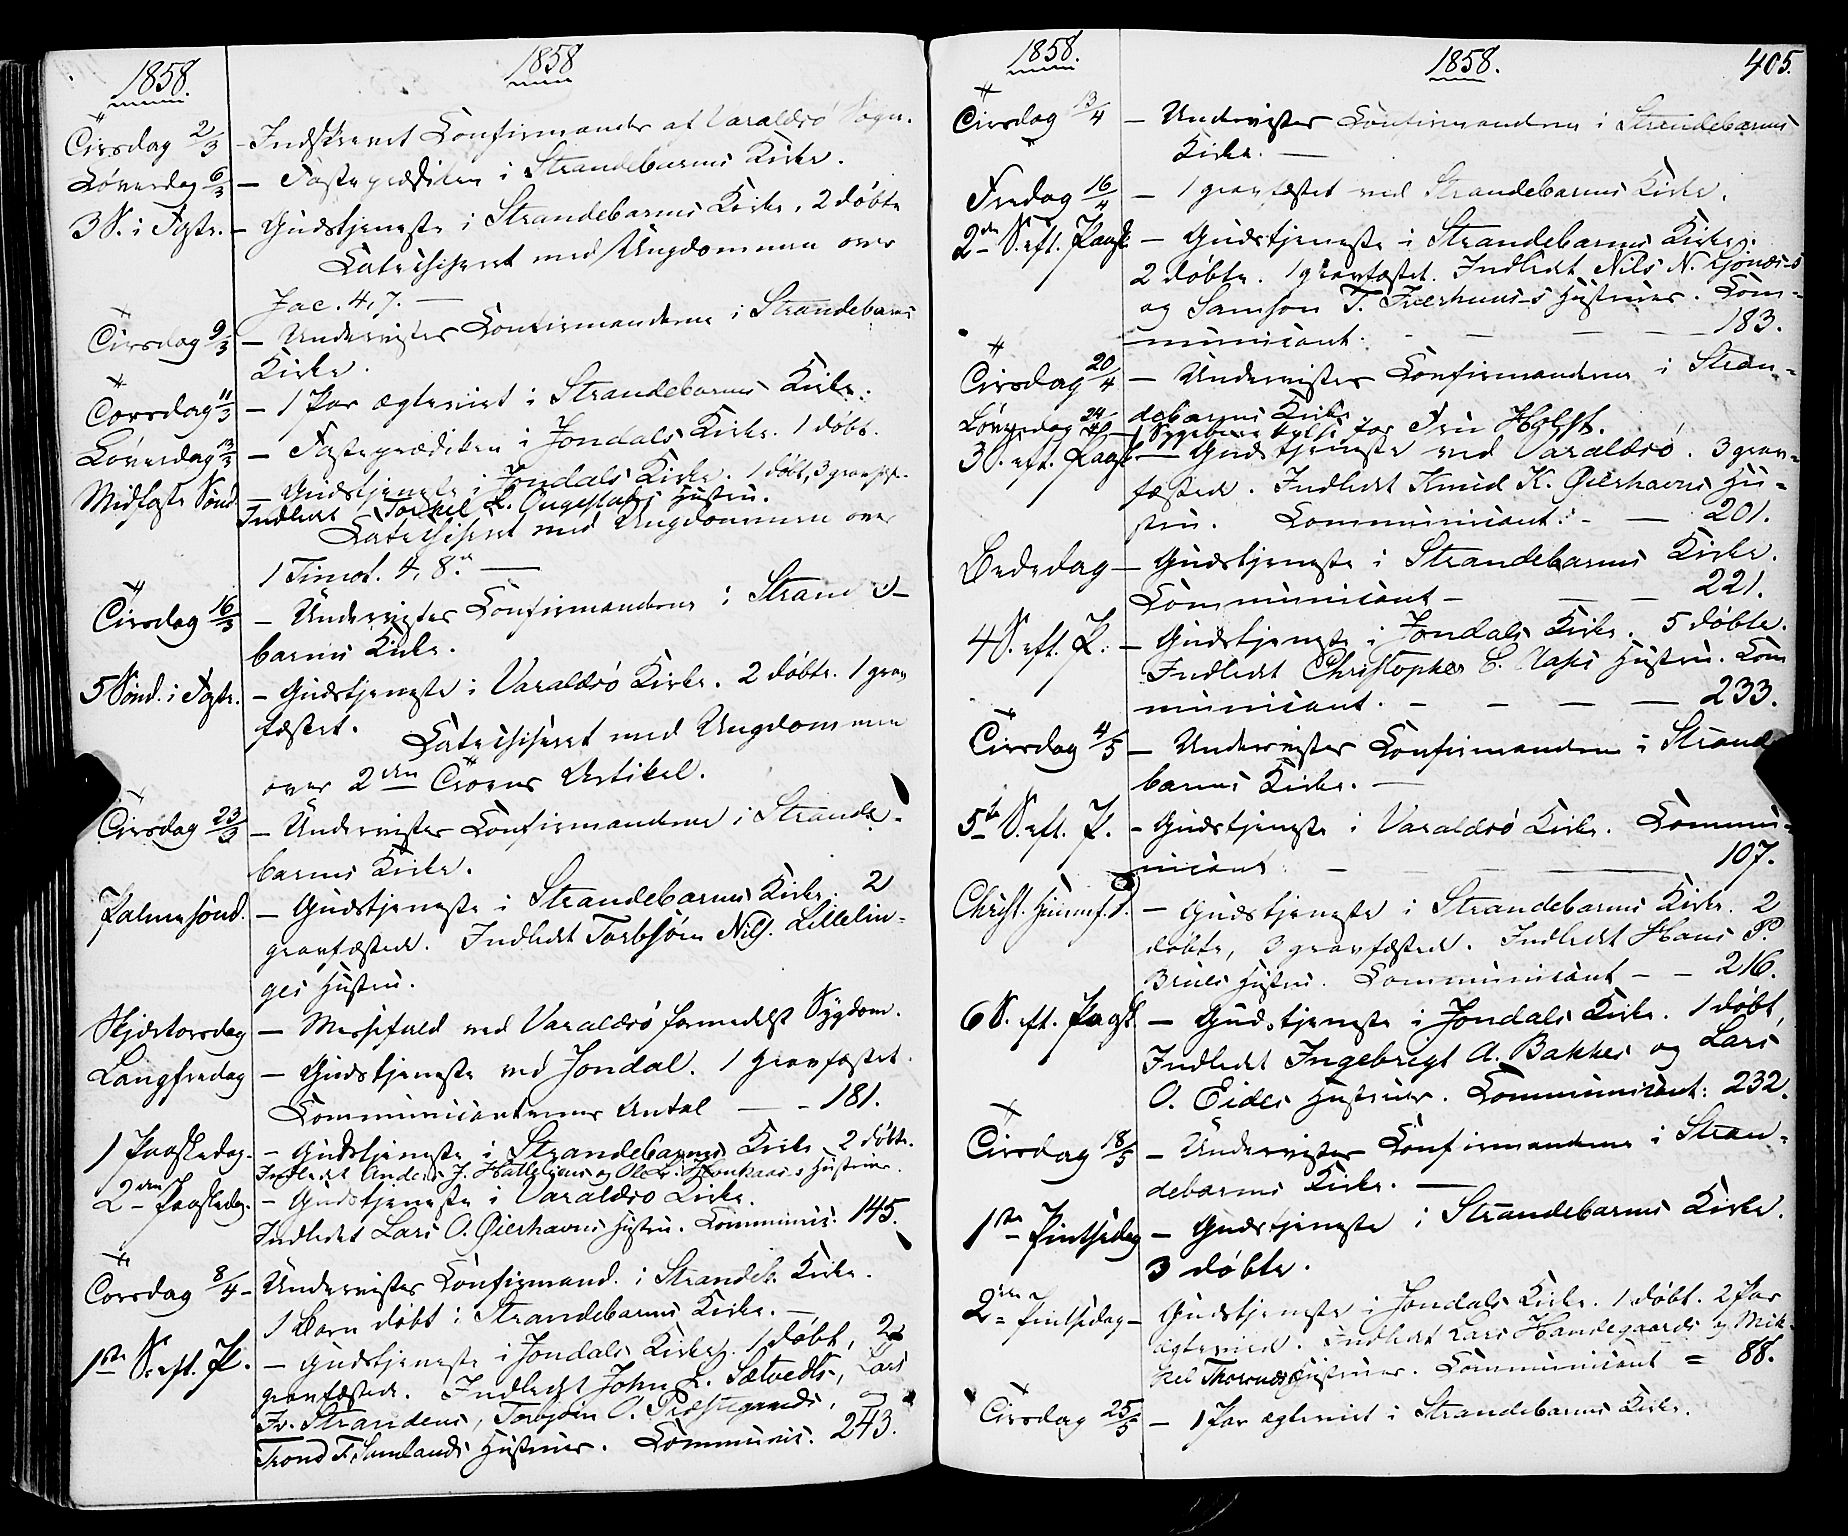 1858.
1858
Tirsdag 2/3 - Indskrevet Confirmander af Varaldsö Sogn.
Löverdag 6/3 - Fasteprædiken i Strandebarms Kirke.
3 S. i Faste. - Gudstjeneste i Strandebarms Kirke. 2 döbte
Catechiseret med Ungdommen over
Jac. 4,7. -
Tirsdag 9/3 - Underviistes Confirmanderne i Strandebarms
Kirke.
Torsdag 11/3 - 1 Par ægteviet i Strandebarms Kirke.
Löverdag 13/3 - Fasteprædiken i Jondals Kirke. 1 döbt.
Midfaste Sönd. - Gudstjeneste i Jondals Kirke. 1 döbt, 3 gravfæst.
Indledt Torkel Hustru.
Catechiseret med Ungdommen over
1 Timot. 4, 8. -
Tirsdag 16/3 - Underviistes Confirmanderne i Strande-
barms Kirke.
5 Sönd. i Faste. - Gudstjeneste i Varaldsö Kirke. 2 döbte. 1 grav
fæstet. Catechiseret med Ungdommen
over 2den Troens Artikel.
Tirsdag 23/3 - Underviistes Confirmanderne i Strande-
barms Kirke.
Palmesönd. - Gudstjeneste i Strandebarms Kirke. 2
gravfæstede. Indledt Torbjörn Nils. Lillelin-
ges Hustru.
Skjærtorsdag - Messefald ved Varaldsö formedelst Sygdom.
Langfredag - Gudstjeneste ved Jondal. 1 gravfæstet.
Communicanternes Antal - - 181.
1 Paaskedag. - Gudstjeneste i Strandebarms Kirke 2 döbte.
Indledt Anders J. og Ole Hustruer.
2den Paaskedag. - Gudstjeneste i Varaldsö Kirke.
Indledt Lars O. Öierhavns Hustru. Communic. 145.
Torsdag 8/4 - Underviistes Confirmand. i Strandeb. Kirke.
1 Barn döbt i Strandebarms Kirke. -
1ste S. eft. P. - Gudstjeneste i Jondals Kirke. 1 döbt, 2
gravfæstede. Indledt John L. Sætvedts, Lars
Fr. Strandens, Torbjörn O. Præstegaards,
Trond T. Samlands Hustruer. Communic. 243.
1858.
1858.
405.
Tirsdag 13/4 - Underviistes Confirmanderne i Strandebarms
Kirke. -
Fredag 16/4 - 1 gravfæstet ved Strandebarms Kirke.
2den S. eft. Paask. - Gudstjeneste i Strandebarms Kirke.
2 döbte. 1 gravfæstet. Indledt Nils N.
og Samson T. Hustruer. Com-
municant. - - - - 183.
Tirsdag 20/4 - Underviistes Confirmanderne i Stran-
debarms Kirke
Löverdag 24/4 - 1 for Fru Holst.
3 S. eft. Paask. - Gudstjeneste ved Varaldsö. 3 grav-
fæstede. Indledt Knud K. Öierhavns Hu-
stru. Communicant: - - 201.
Bededag - Gudstjeneste i Strandebarms Kirke.
Communicant - - - 221.
4 S. eft. P. - Gudstjeneste i Jondals Kirke. 5 döbte.
Indledt Christopher Hustru. Com
municant. - - - - 233.
Tirsdag 4/5 - Underviistes Confirmanderne i Strande
barms Kirke. -
5te S. eft. P. - Gudstjeneste i Varaldsö Kirke. Commu-
nicant: - - - 107.
Christ. Himmelf. D. - Gudstjeneste i Strandebarms Kirke. 2
döbte, 3 gravfæstede. Indledt Hans P.
Hustru. Communicant - - 216.
6 S. eft. Paask. - Gudstjeneste i Jondals Kirke. 1 döbt,
Indledt Ingebrigt A. Bakkes og Lars
O. Eides Hustruer. Communicant: 232.
Tirsdag 18/5 - Underviistes Confirmanderne i Stran-
debarms Kirke. -
1ste Pintsedag - Gudstjeneste i Strandebarms Kirke.
3 döbte.
2den Pintsedag - Gudstjeneste i Jondals Kirke. 1 döbt. 2 Par
ægteviede. Indledt Lars Handegaards og Mik-
kel Hustruer. Communicant = 88.
Tirsdag 25/5 - 1 Par ægteviet i Strandebarms Kirke.